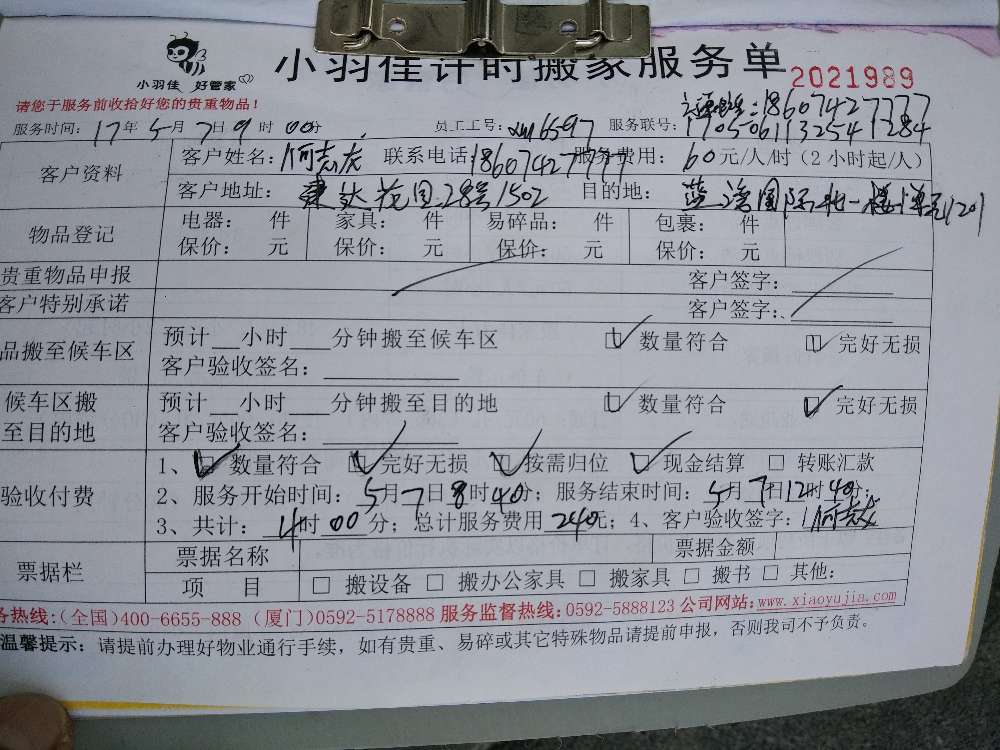 小羽佳 好管家
小羽佳计时搬家服务单 2021989
请您于服务前收拾好您的贵重物品！
18607427777
服务时间：17年5月7日9时00分 员工工号： 服务联号：170506113254 1284
客户资料 客户姓名：何志友 联系电话：18607427777 服务费用：60元/人/时（2小时起/人）
客户地址：达花园28号1502 目的地：蓝湾国际
物品登记 电器： 件 家具： 件 易碎品： 件 包裹： 件
保价： 元 保价： 元 保价： 元 保价： 元
贵重物品申报 客户签字：
客户特别承诺 客户签字：
品搬至候车区 预计 小时 分钟搬至候车区 数量符合 完好无损
客户验收签名：
候车区搬 预计 小时 分钟搬至目的地 数量符合 完好无损
至目的地 客户验收签名：
1、 数量符合 完好无损 按需归位 现金结算 转账汇款
验收付费 2、服务开始时间：5月7日8时40分；服务结束时间：5月7日12时40分；
3、共计：4时00分；总计服务费用240元；4、客户验收签字：何志友
票据栏 票据名称 票据金额
项 目 搬设备 搬办公家具 搬家具 搬书 其他：
务热线:(全国)400-6655-888 (厦门)0592-5178888 服务监督热线:0592-5888123 公司网站:www.xiaoyujia.com
温馨提示：请提前办理好物业通行手续，如有贵重、易碎或其它特殊物品请提前申报，否则我司不予负责。